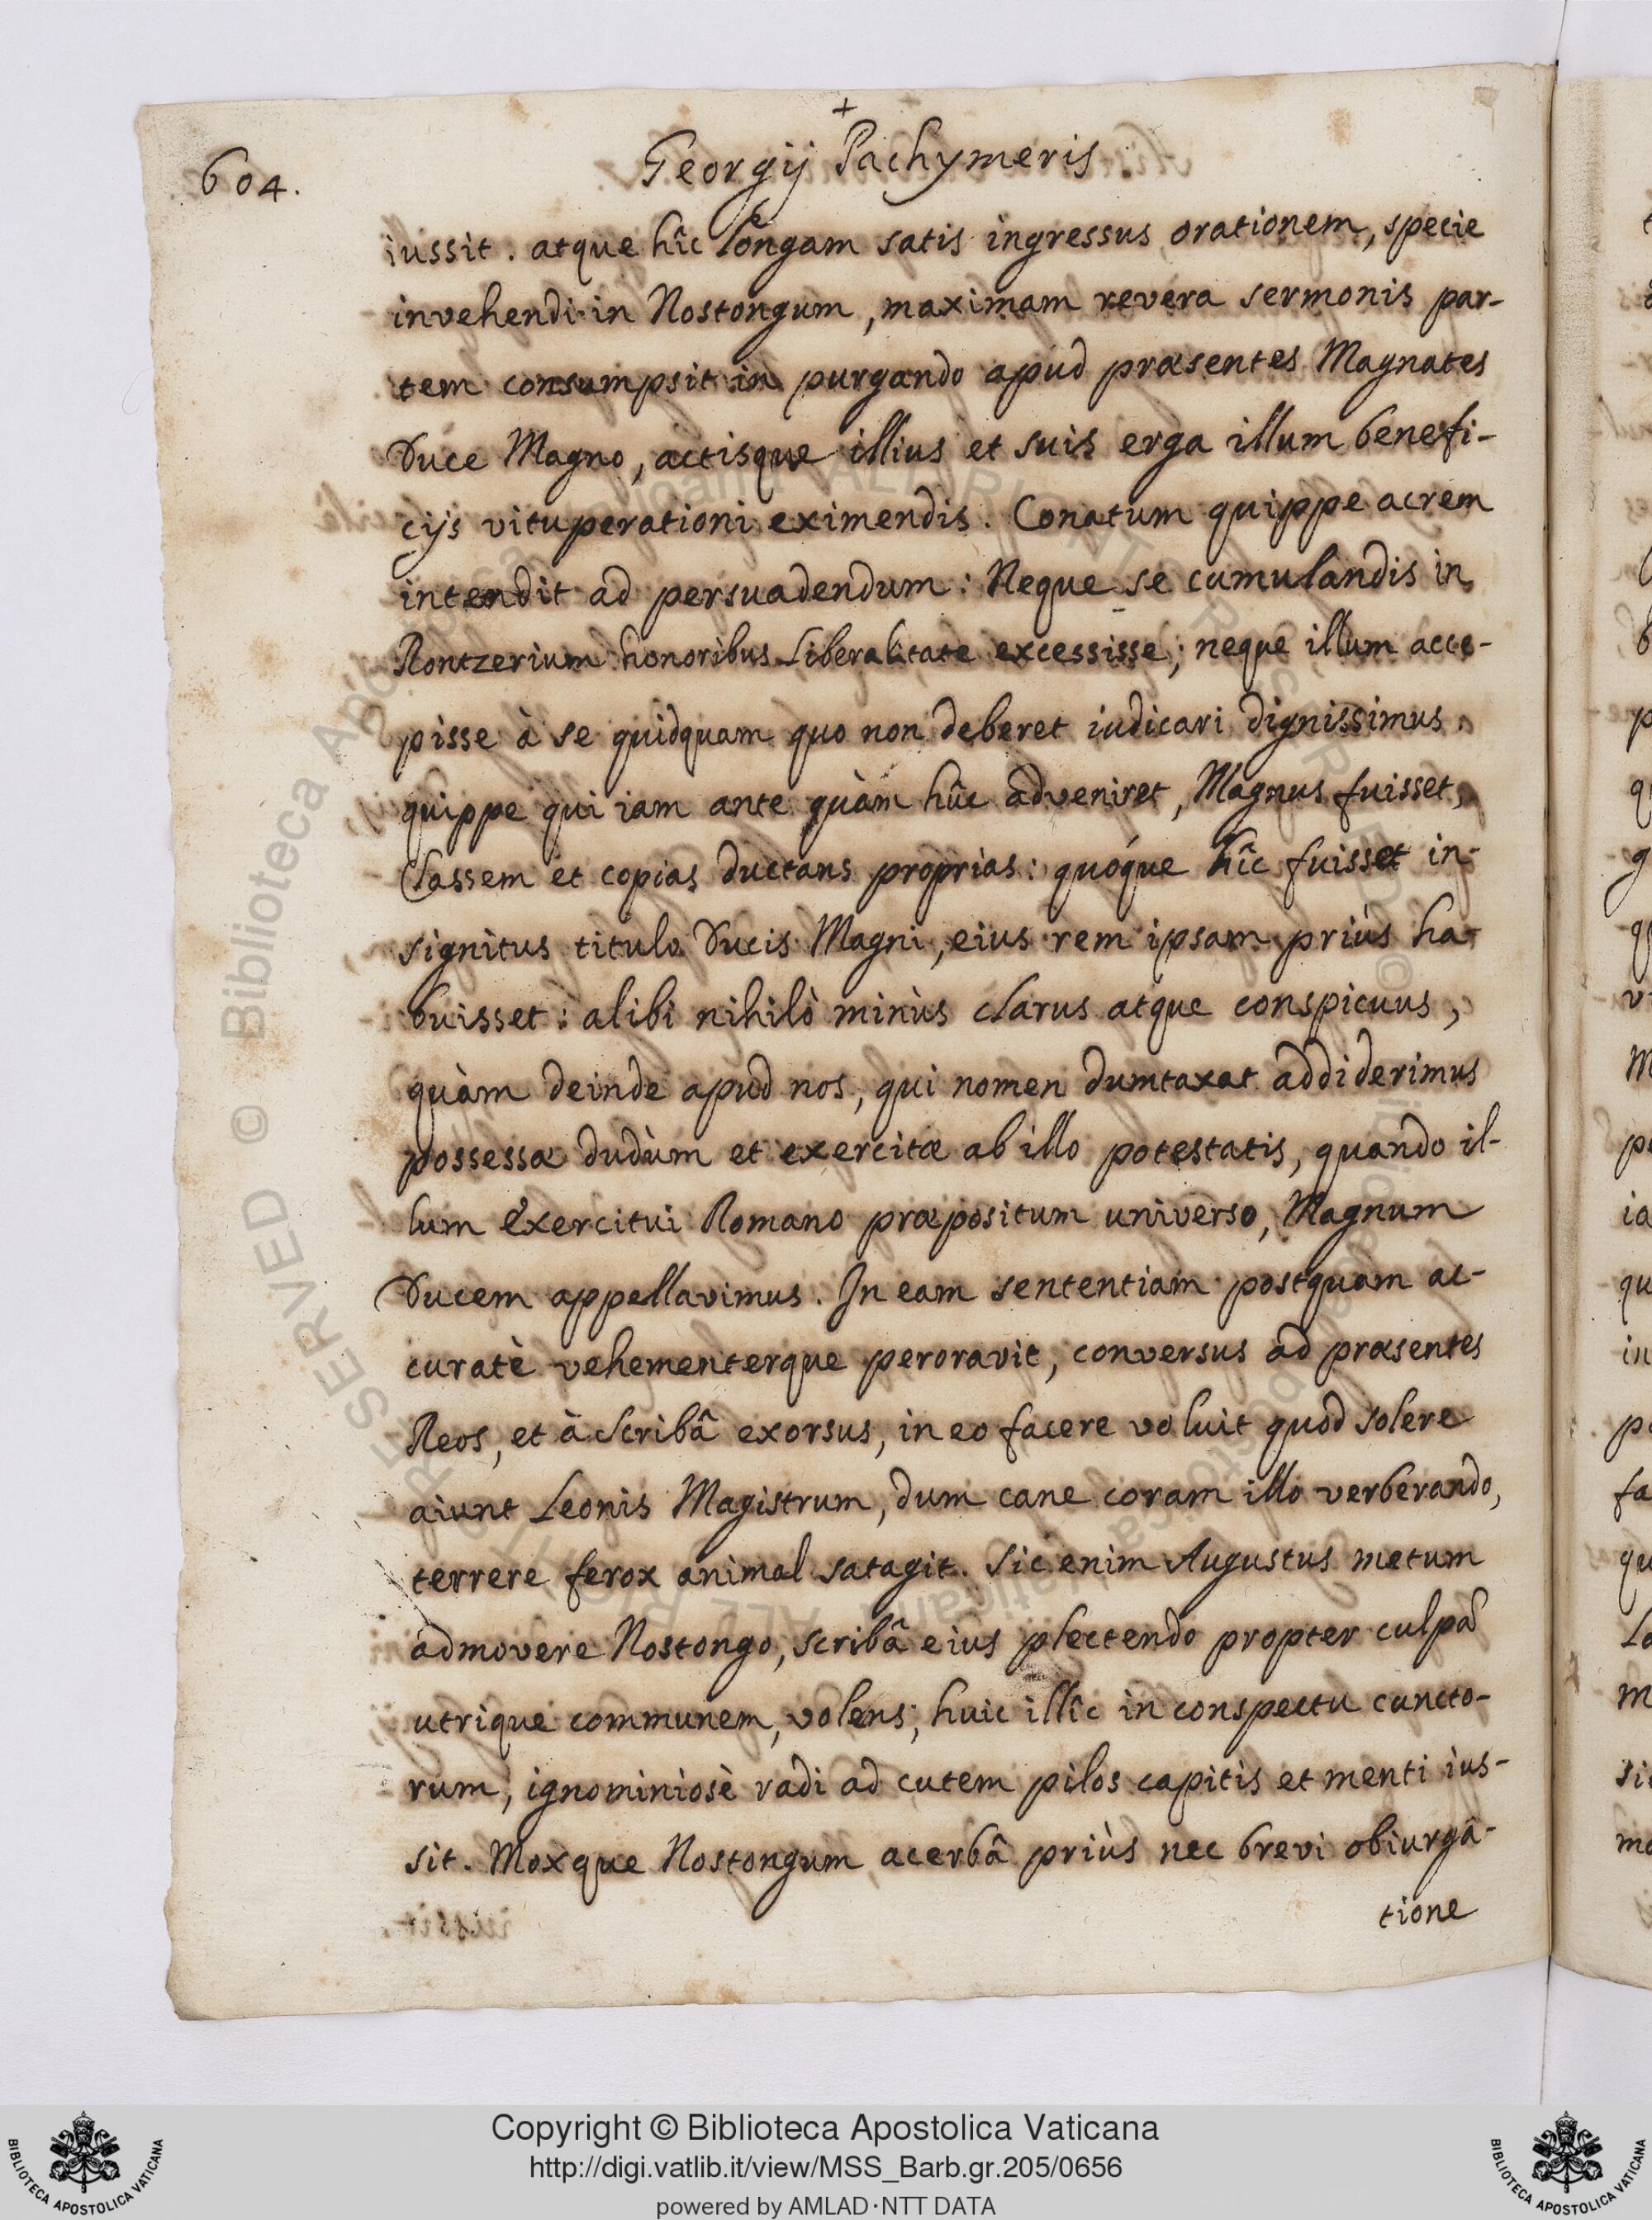 +
604.
Georgij Pachymeris
iussit. atque hîc longam satis ingressus orationem, specie
invehendi in Nostongum, maximam revera sermonis par-
tem consumpsit in purgando apud præsentes Magnates
Duce Magno, actisque illius et suis erga illum benefi-
cijs vituperationi eximendis. Conatum quippe acrem
intendit ad persuadendum: Neque se cumulandis in
Rontzerium honoribus liberalitate excessisse; neque illum acce-
pisse à se quidquam quo non deberet iudicari dignissimus,
quippe qui iam ante quàm hûc adveniret, Magnus fuisset,
Classem et copias ductans proprias: quóque hîc fuisset in-
signitus titulo Ducis Magni, eius rem ipsam priùs ha-
buisset: alibi nihilò minùs clarus atque conspicuus,
quàm deinde apud nos, qui nomen dumtaxat addiderimus
possessæ dudùm et exercitæ ab illo potestatis, quando il-
lum Exercitui Romano præpositum universo, Magnum
Ducem appellavimus. In eam sententiam postquam ac-
curatè vehementerque peroravit, conversus ad præsentes
Reos, et à Scribâ exorsus, in eo facere voluit quod solere
aiunt Leonis Magistrum, dum cane coram illo verberando,
terrere ferox animal satagit. Sic enim Augustus metum
admovere Nostongo, scribâ eius plectendo propter culpã
utrique communem, volens; huic illîc in conspectu cuncto-
rum, ignominiosè radi ad cutem pilos capitis et menti ius-
sit. Moxque Nostongum acerbâ priùs nec brevi obiurgâ-
tione
Copyright © Biblioteca Apostolica Vaticana
http://digi.vatlib.it/view/MSS_Barb.gr.205/0656
powered by AMLAD·NTT DATA
BIBLIOTECA APOSTOLICA VATICANA
BIBLIOTECA APOSTOLICA VATICANA